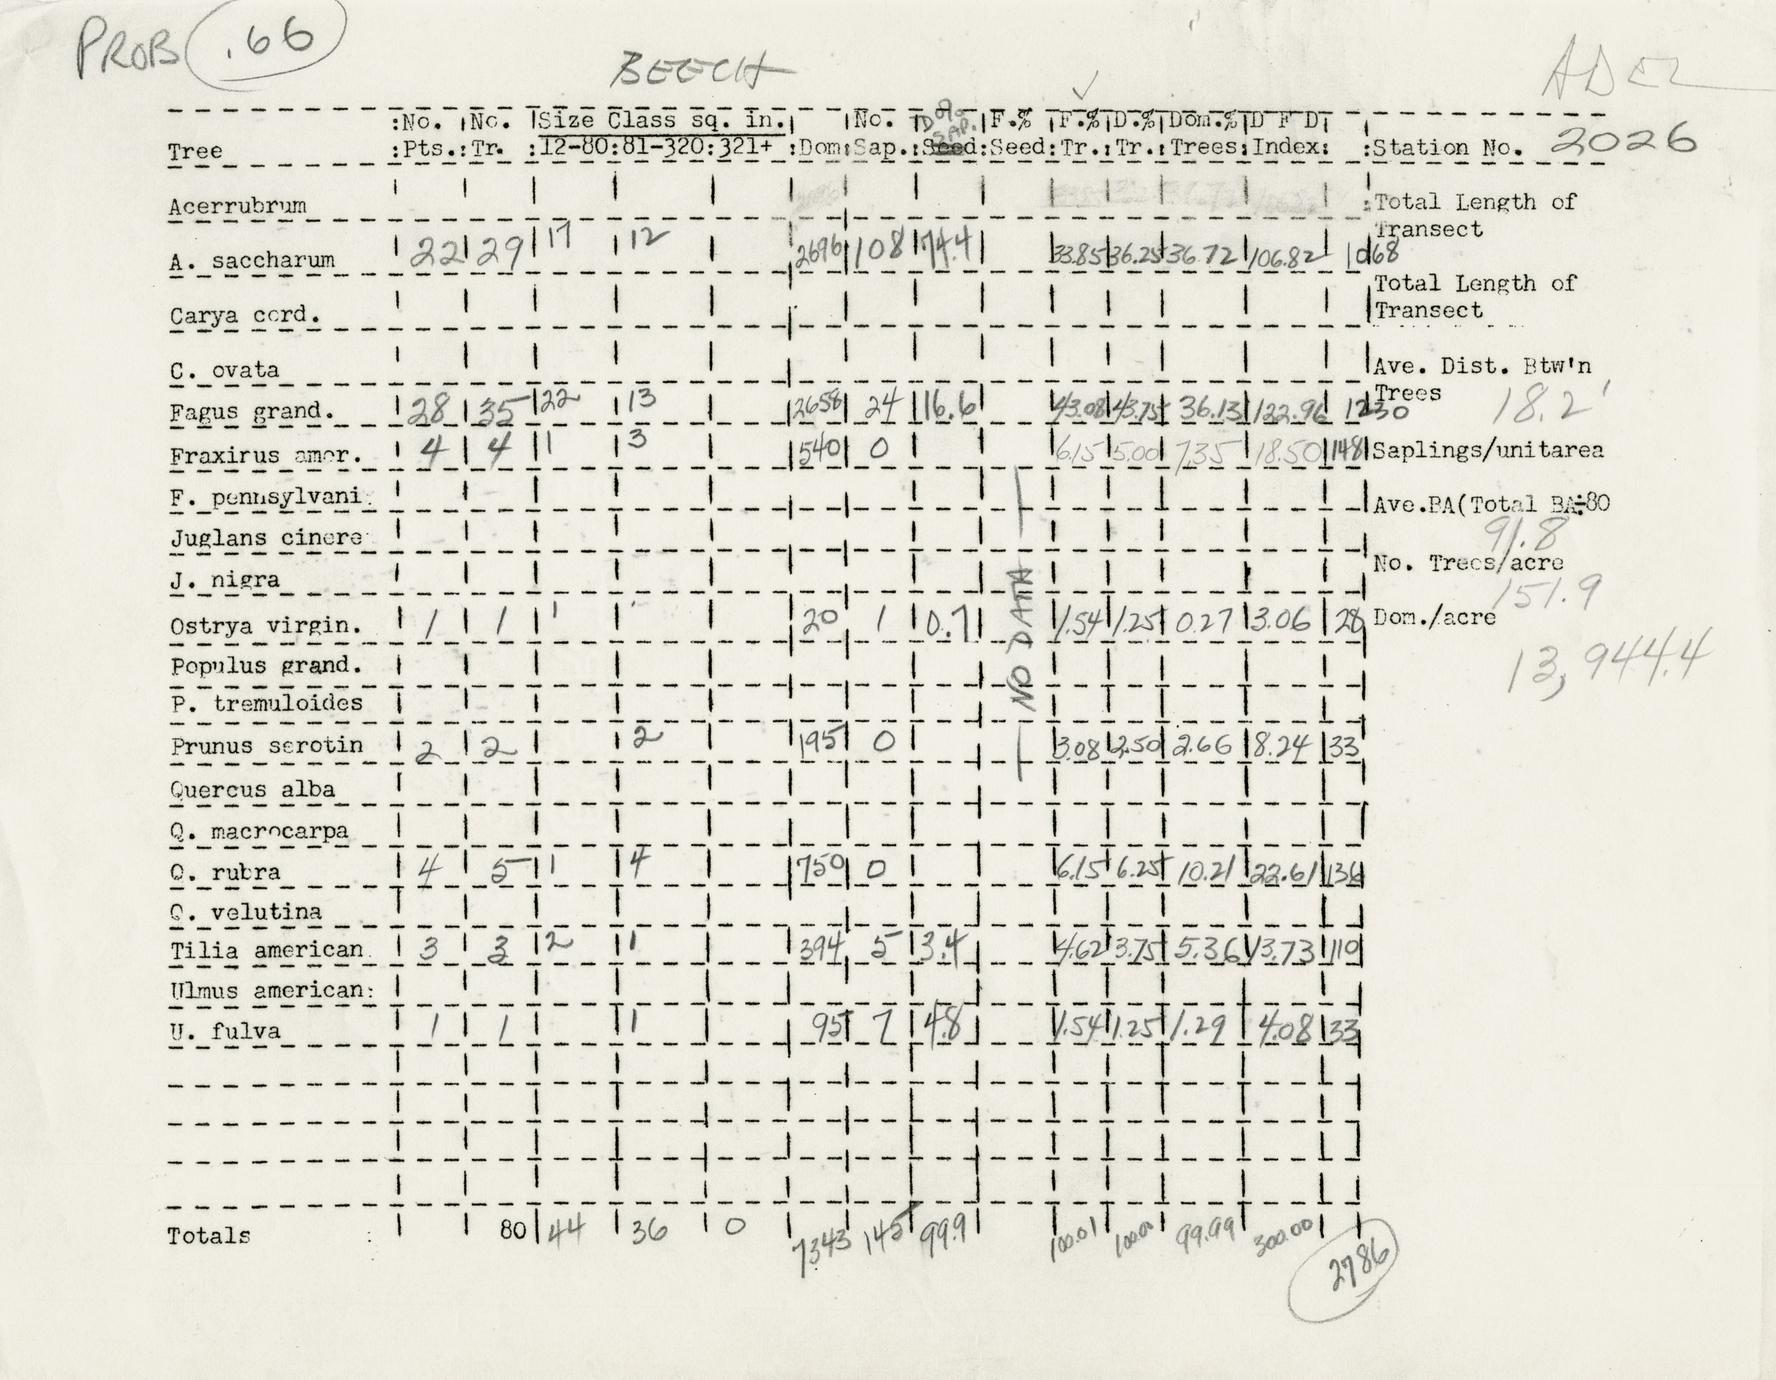 PROB .66
BEECH
✓
ADEL
:No. :No. |Size Class sq. in.| |No. D% SAP. |F.% |F.%|D.%|Dom.%|D F D|
Tree :Pts.:Tr. :12-80:81-320:321+ :Dom:Sap.:Seed:Seed:Tr.:Tr.:Trees:Index: :Station No. 2026
Acerrubrum :Total Length of
Transect
A. saccharum 22 29 17 12 2696 108 74.4 33.85 36.25 36.72 106.82 1068
Total Length of
Carya cord. Transect
C. ovata Ave. Dist. Btw'n
Trees 18.2'
Fagus grand. 28 35 22 13 2658 24 16.6 43.08 43.75 36.13 122.96 1230
Fraxirus amer. 4 4 1 3 540 0 6.15 5.00 7.35 18.50 148 Saplings/unitarea
F. pennsylvani: Ave.BA(Total BA÷80
91.8
Juglans cinere:
No. Trees/acre
J. nigra 151.9
Ostrya virgin. 1 1 1 20 1 0.7 NO DATA 1.54 1.25 0.27 3.06 28 Dom./acre
13,944.4
Populus grand.
P. tremuloides
Prunus serotin 2 2 2 195 0 3.08 2.50 2.66 8.24 33
Quercus alba
Q. macrocarpa
Q. rubra 4 5 1 4 750 0 6.15 6.25 10.21 22.61 136
Q. velutina
Tilia american. 3 3 2 1 394 5 3.4 4.62 3.75 5.36 13.73 110
Ulmus american:
U. fulva 1 1 1 95 7 4.8 1.54 1.25 1.29 4.08 33
Totals : 80 44 36 0 7343 145 99.9 100.01 100.00 99.99 300.00 2786